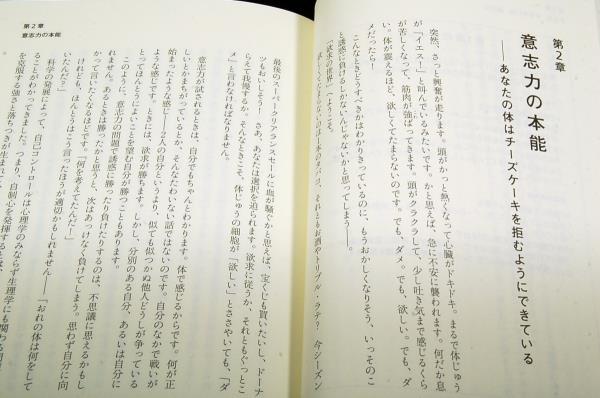 第2章
意志力の本能
――あなたの体はチーズケーキを拒むようにできている
突然、さっと興奮が走ります。頭がかっと熱くなって心臓がドキドキ。まるで体じゅう
が「イエス！」と叫んでいるみたいです。かと思えば、急に不安に襲われます。何だか息
が苦しくなって、筋肉が強ばってきます。頭がクラクラして、少し吐き気まで感じるくら
い。体が震えるほど、欲しくてたまらないのです。でも、ダメ。でも、欲しい。でも、ダ
メだったら！
こんなときどうすべきかはわかりきっているのに、もうおかしくなりそう、いっそのこ
と誘惑に負けるしかないんじゃないかと思ってしまう――。
「欲求の世界」へようこそ。
のは一本のタバコ、それともお酒？ トリプル・ラテ？ 今シーズン
第2章
意志力の本能
最後のスーパークリアランスセールに血が騒ぐかと思えば、宝くじも買いたいし、ドーナ
ツもおいしそう！ さあ、あなたは選択を迫られます。欲求に従うか、それともぐっとこ
らえて我慢するか。そんなときこそ、体じゅうの細胞が「欲しい」とささやいても、「ダ
メ」と言わねばなりません。
意志力が試されるときは、自分でもちゃんとわかります。体で感じるからです。何が正
しいとかまちがっているとか、そんなたわいない話ではないのです。自分のなかで戦いが
始まったような感じ――2人の自分というより、似ても似つかぬ他人どうしが争っている
ような感じです。ときには、欲求が勝ちます。しかし、分別のある自分、あるいは自分に
とってほんとうによいことを望む自分が勝つこともあります。
このように、意志力の問題で誘惑に勝ったり負けたりするのは、不思議に思えるかもし
れません。あるときは勝ったかと思うと、次はあっけなく負けてしまう。思わず自分に向
かって言いたくなるほどです。「何を考えてたんだ！」
けれども、ほんとうはこう言ったほうが適切かもしれません――「おれの体は何をして
いたんだ？」
科学の発展によって、自己コントロールは心理学のみならず生理学にも関わる問
ことがわかってきました。つまり、自制心を発揮するとは、
を克服する強さと落ちつきが生まれて